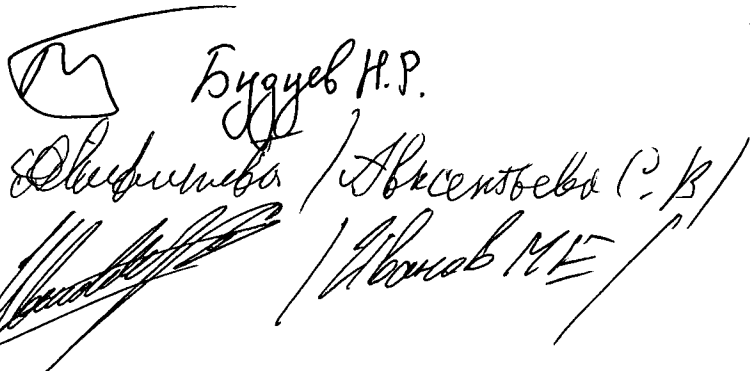 Будуев Н.Р.
/Авксентьева С.В/
/Иванов М Е/